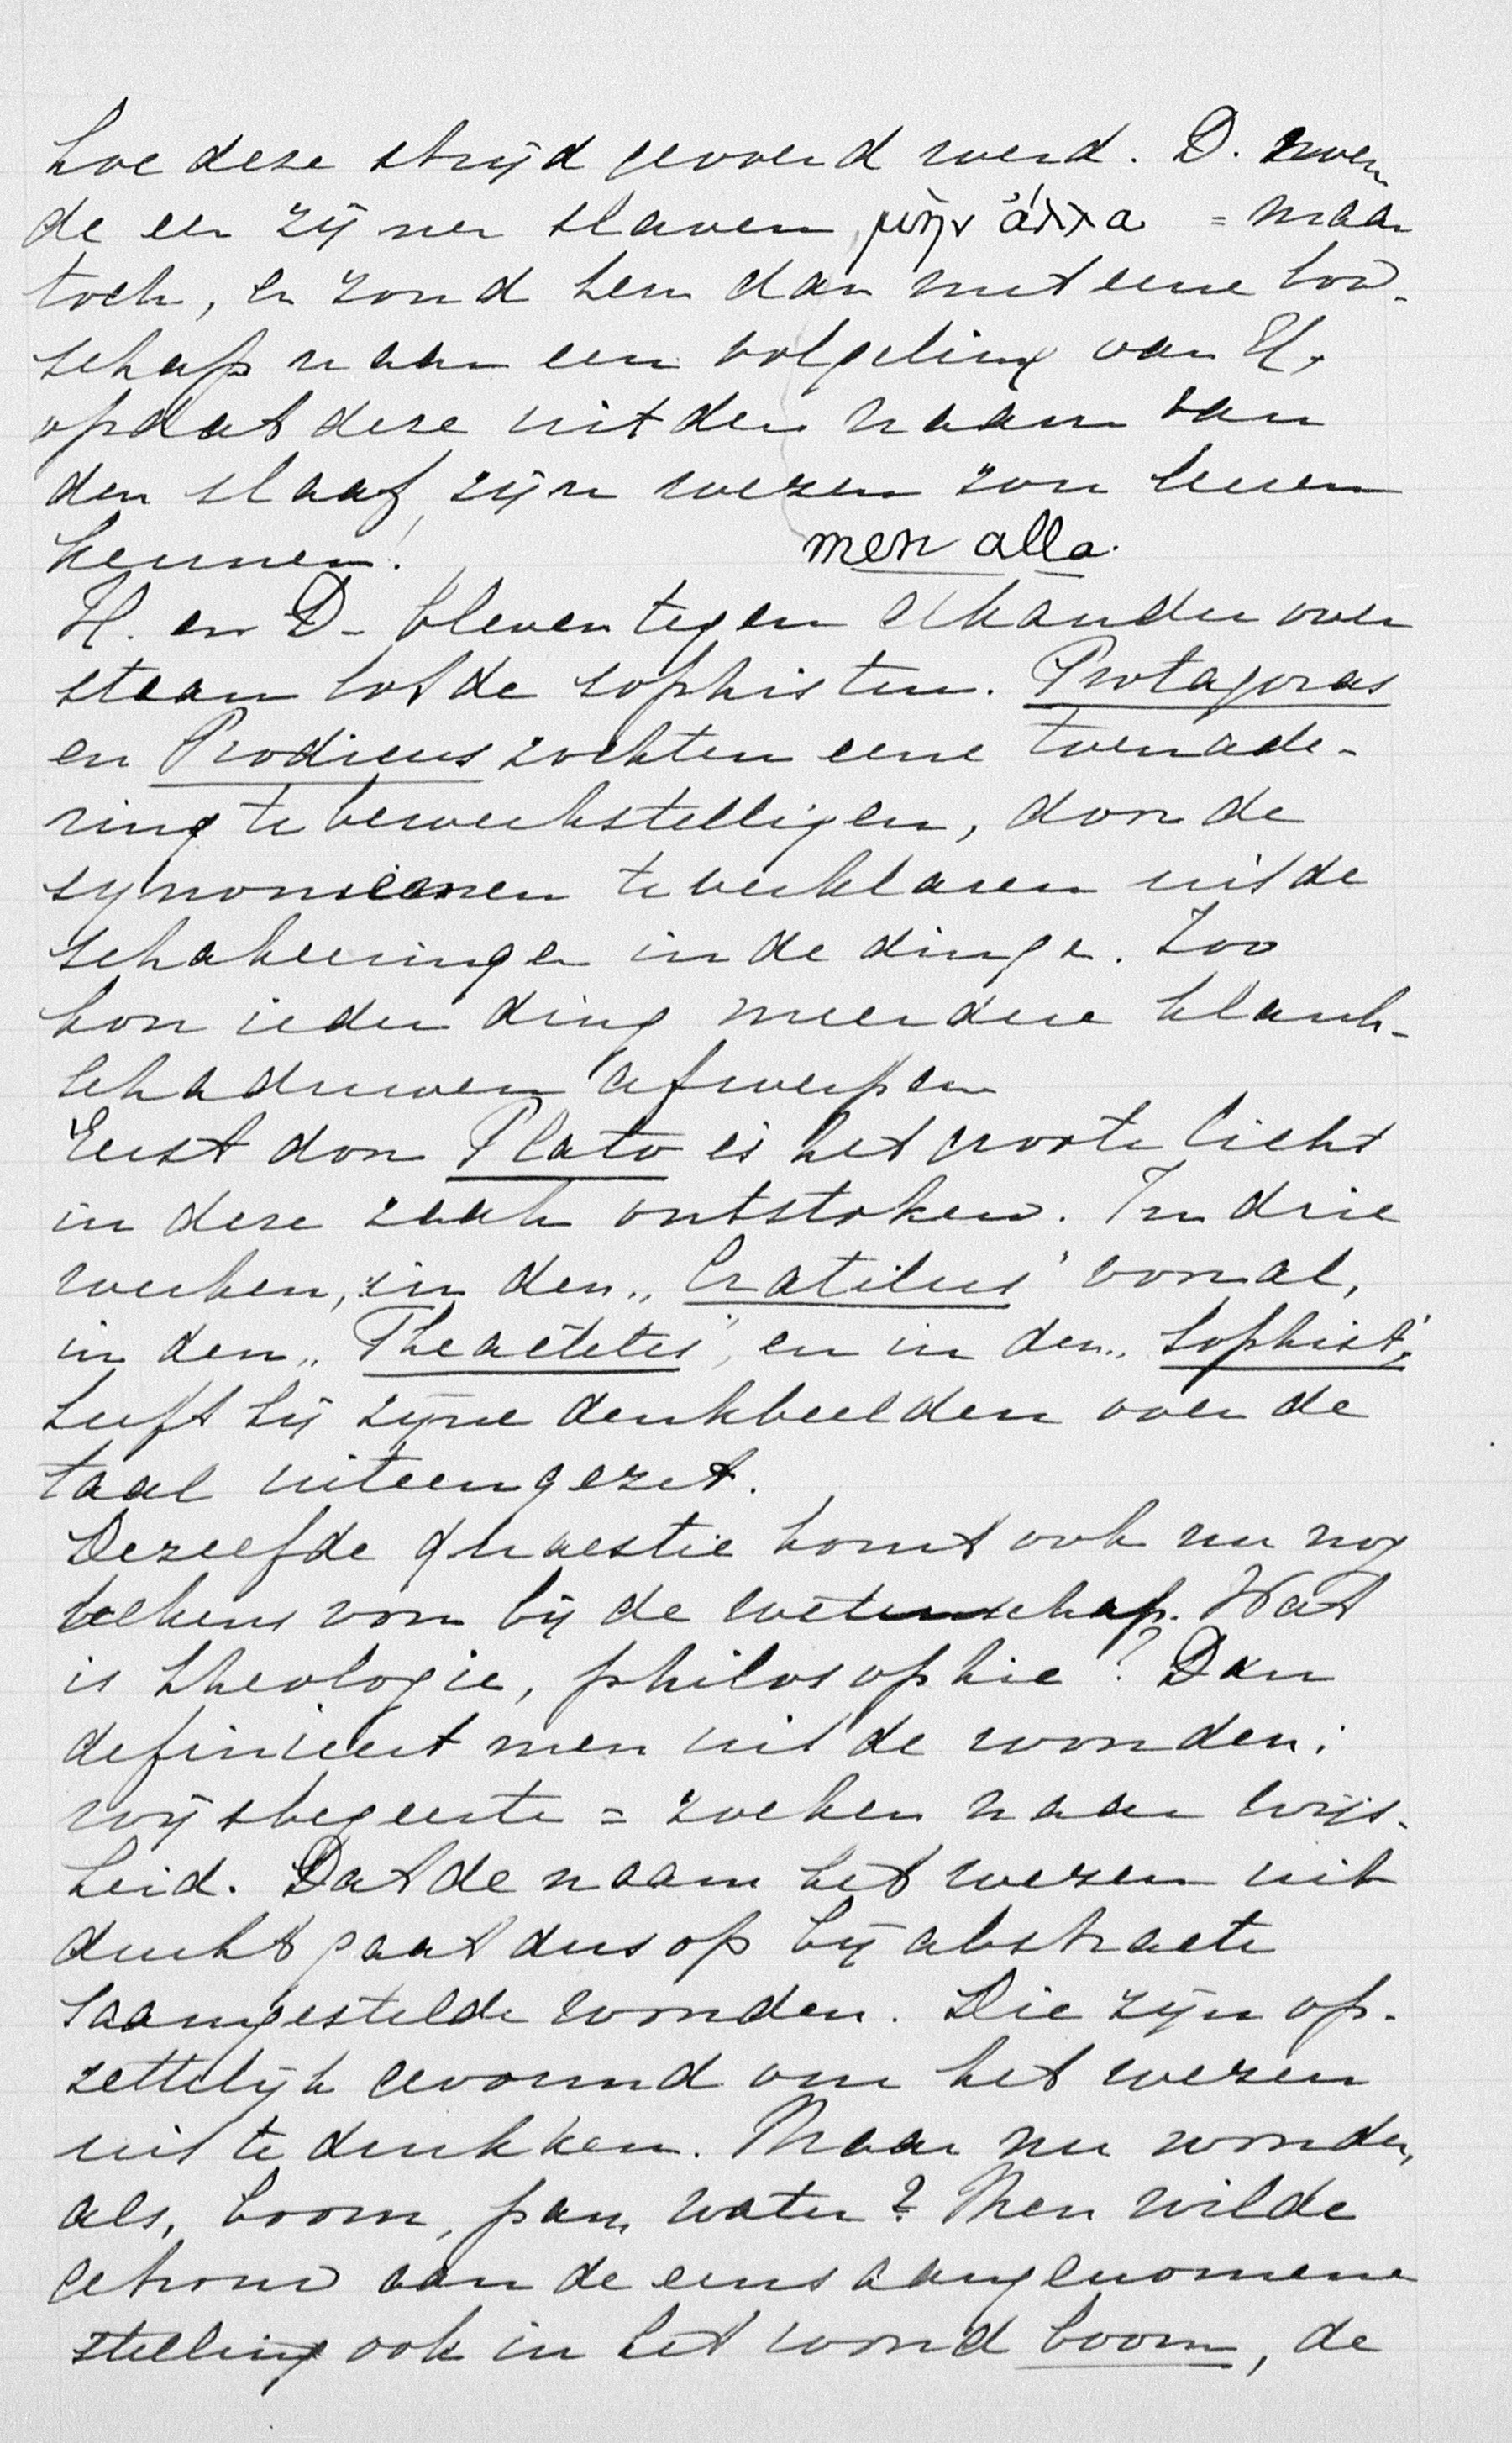 hoe deze strijd gevoerd werd. D. noem
de een zijner slaven, μὴν ἀλλα = maar
toch, en zond hem dan met eene bood-
schap naar een volgeling van H.
opdat deze uit den naam van
den slaaf, zijn wezen zou leeren
kennen!
men alla.
H. en D. bleven tegen elkander over
staan tot de sophisten. Protagoras
en Prodicus zochten eene toenade-
ring te bewerkstelligen, door de
synoniemen te verklaren uit de
schakeeringen in de dingen. Zoo
kon ieder ding meerdere klank-
schaduwen afwerpen
Eerst door Plato is het groote licht
in deze zaak ontstoken. In drie
werken, in den „Cratilus" vooral,
in den „Theaëtetes", en in den „Sophist",
heeft hij zijne denkbeelden over de
taal uiteengezet.
Dezelfde quaestie komt ook nu nog
telkens voor bij de wetenschap. Wat
is theologie, philosophie? Dan
definieert men uit de woorden:
wijsbegeerte = zoeken naar wijs-
heid. Dat de naam het wezen uit
drukt gaat dus op bij abstracte
saamgestelde woorden. Die zijn op-
zettelijk gevormd om het wezen
uit te drukken. Maar nu woorden,
als, boom, pan, water? Men wilde
getrouw aan de eens aangenomene
stelling ook in het woord boom, de